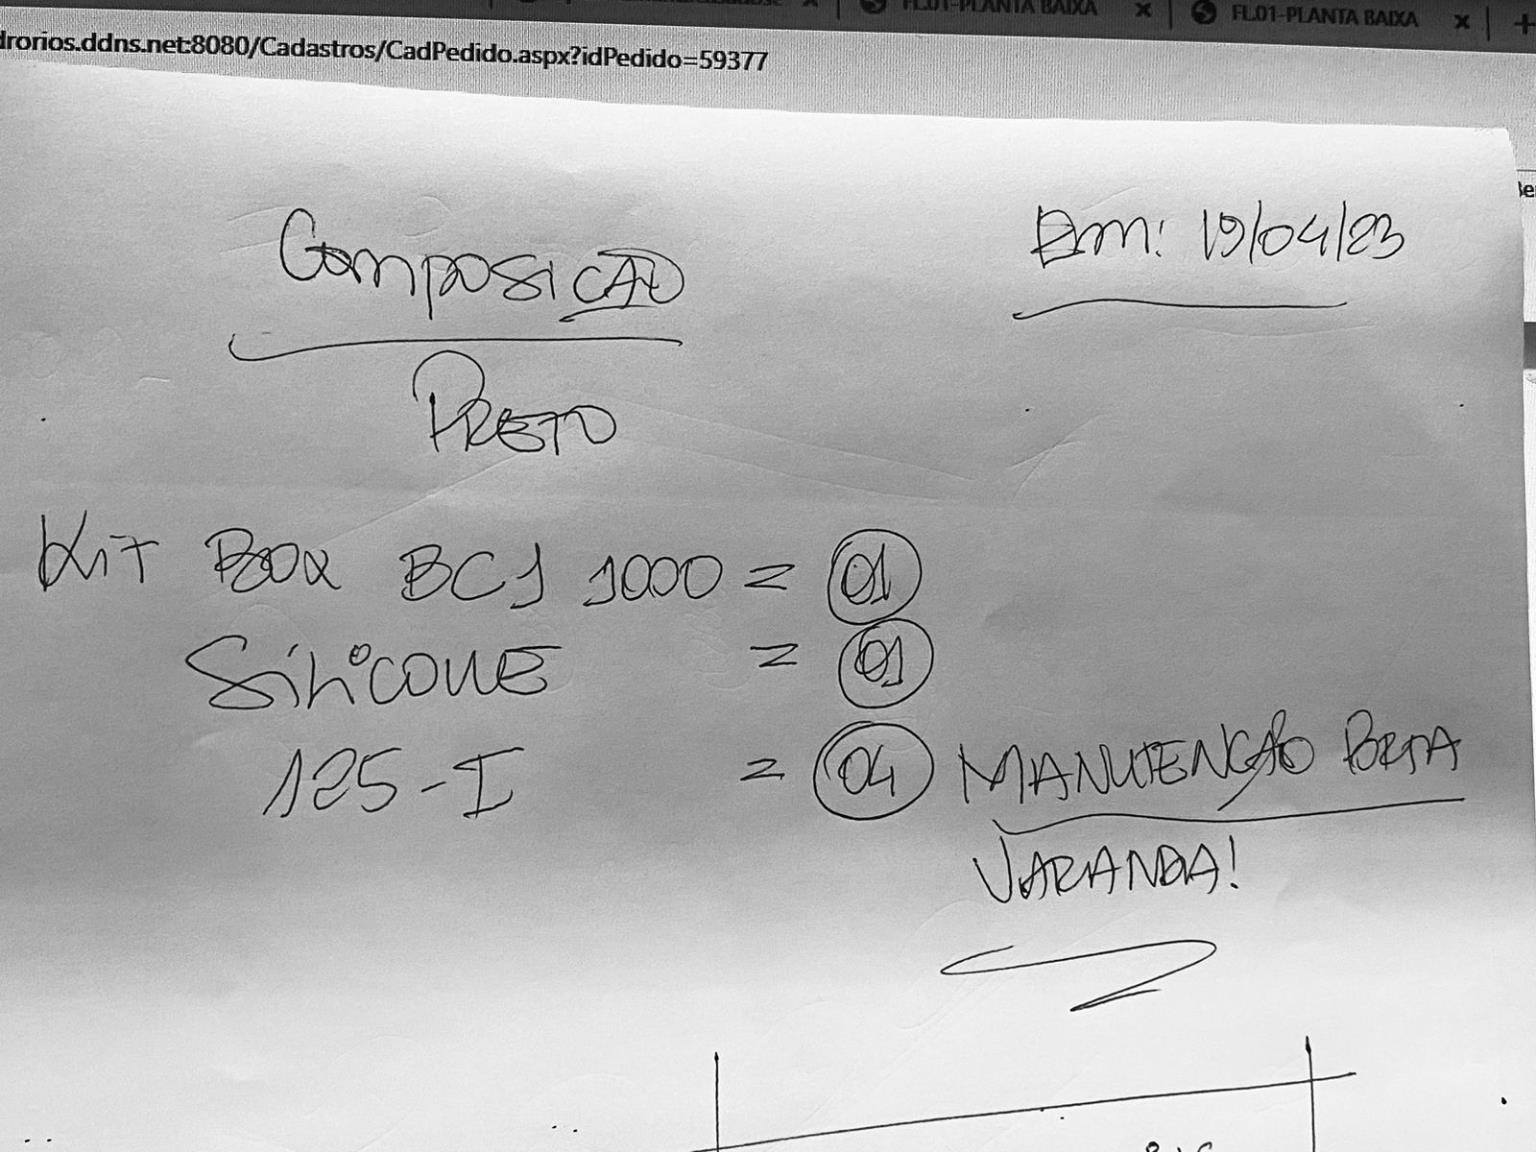 FL.01-PLANTA BAIXA
FL.01-PLANTA BAIXA
drorios.ddns.net:8080/Cadastros/CadPedido.aspx?idPedido=59377
Composição
Em: 19/04/23
Preto
Kit Box BC1 1000 = 01
Silicone = 01
125-I = 04 MANUTENÇÃO
VARANDA!